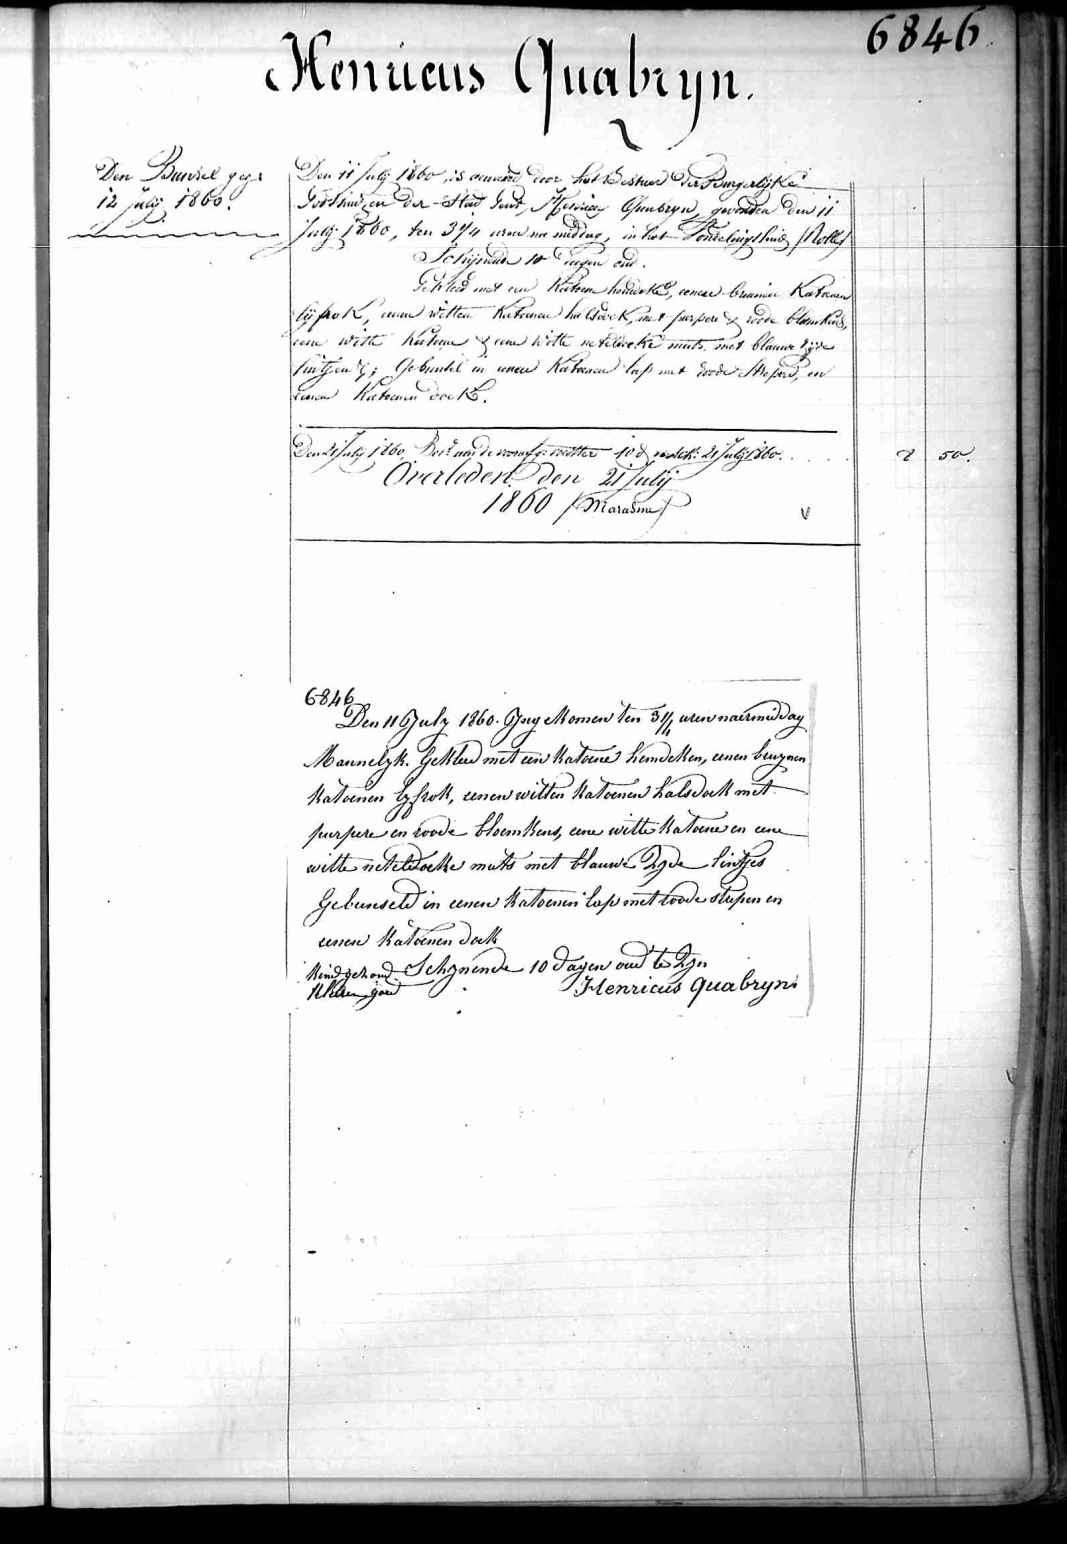 6846
Henricus Quabryn.
Den Bundel geg:
12 July 1860.
Den 11 July 1860, is aenveerd door het Bestuer der Burgerlijke
Godshuizen der Stad Gent, Henricus Quabryn, gevonden den 11
July 1860, ten 3 1/4 uren na middag, in het Vondelingshuis /Rolle/
Schijnende 10 dagen oud.
Gekleed met een Katoene hemdeke, eenen bruinen Katoenen
lijfrok, eenen witten Katoenen halsdoek, met purpere & roode bloemkens,
eene witte Katoene & eene witte neteldoeke muts, met blauwe zyde
lintjens; Gebunseld in eenen Katoenen lap met roode strepen, en
eenen Katoenen doek.
Den 21 July 1860, 10 d 21 July 1860. . . . . 2 50.
Overleden den 21 July
1860 /Marasme/
6846
Den 11 July 1860. Ingekomen ten 3 1/4 uren naermiddag
Mannelyk. Gekleed met een katoene hemdeken, eenen bruynen
katoenen lyfrok, eenen witten katoenen halsdoek met
purpere en roode bloemkens, eene witte katoene en eene
witte neteldoeke muts met blauwe Zyde lintjes
Gebunseld in eenen katoenen lap met roode strepen en
eenen katoenen doek
Kind gezond Schynende 10 dagen oud te Zyn
Kleeren goed Henricus Quabryn